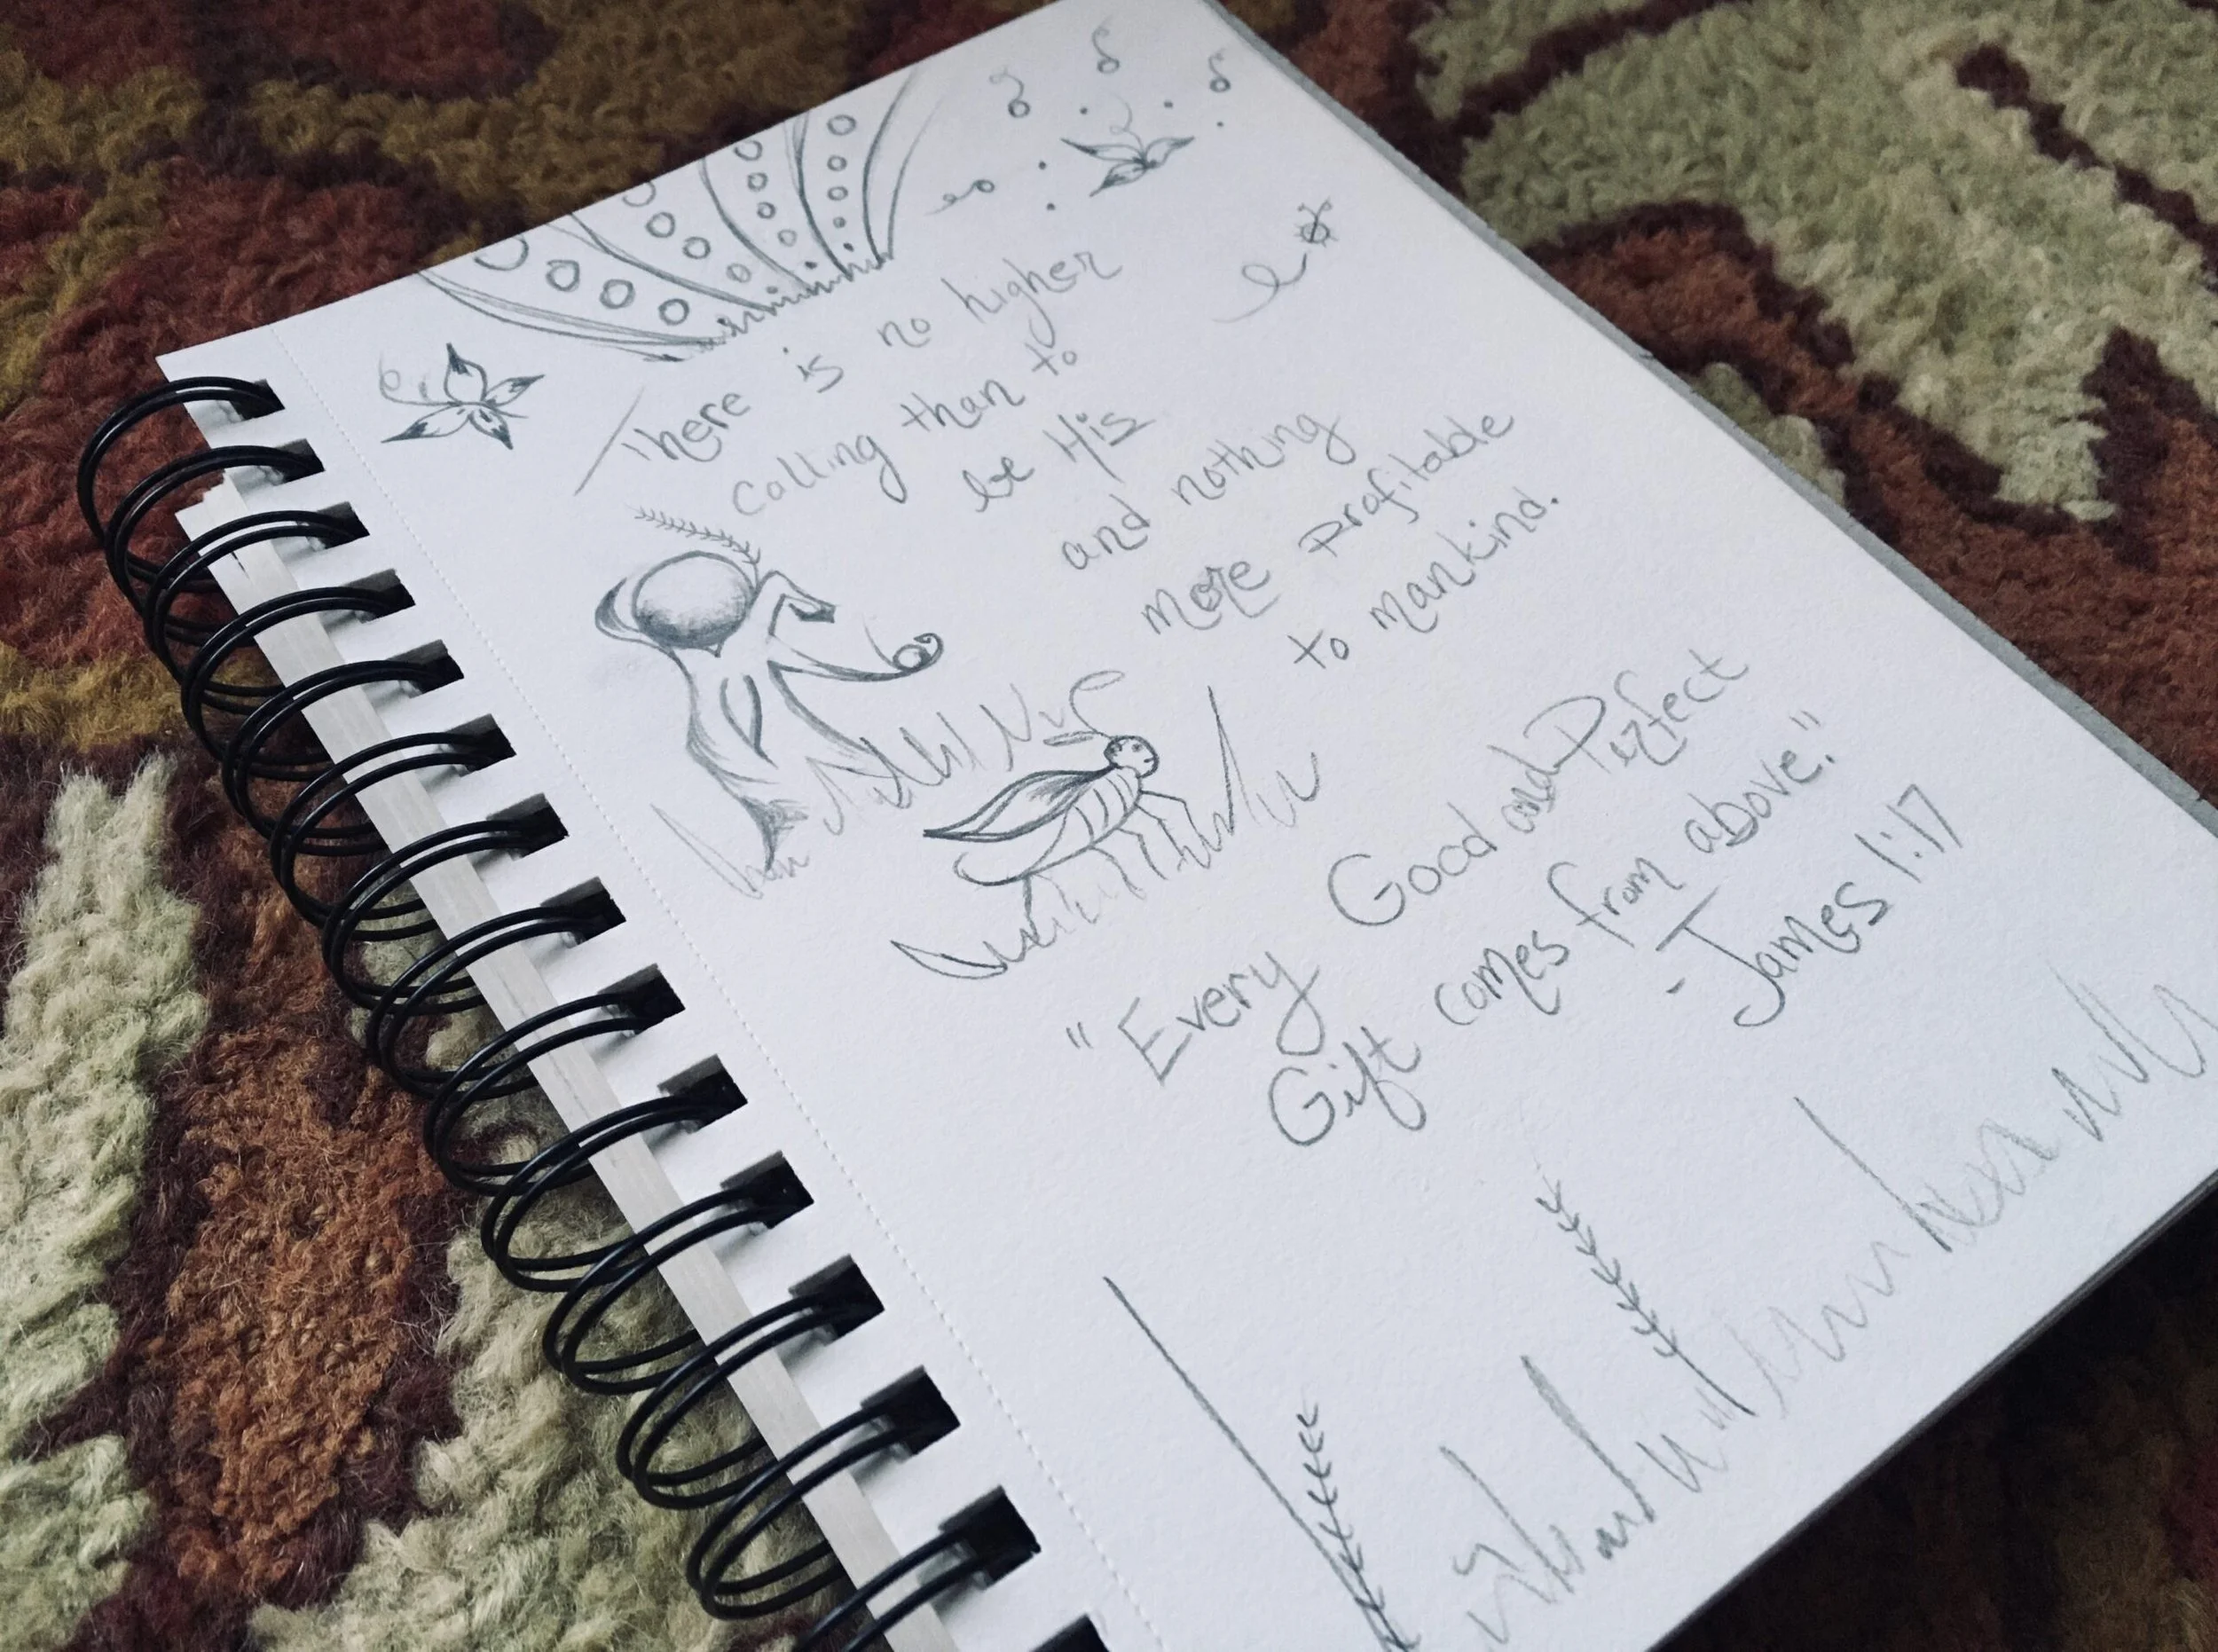 There is no higher
calling than to
be His
and nothing
more profitable
to mankind.
"Every Good and Perfect
Gift comes from above."
- James 1:17